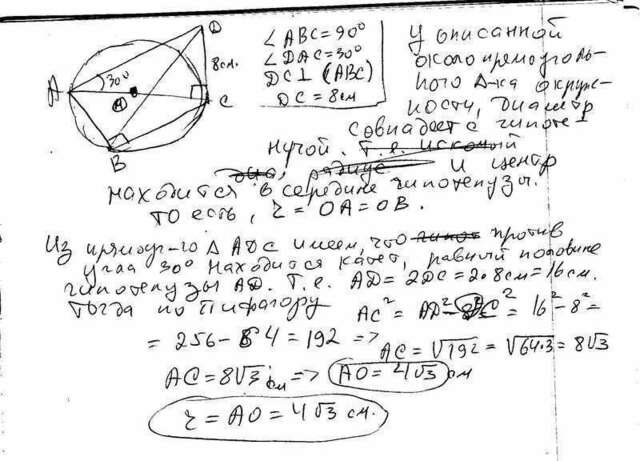 D
8см.
A
30°
C
B
∠ABC=90°
∠DAC=30°
DC⊥(ABC)
DC=8см
У описанной
около прямоуголь-
ного Δ-ка окруж-
ности, диаметр
совпадает с гипоте-
нузой. Т.е. искомый
и центр
находится в середине гипотенузы.
то есть, r=OA=OB.
Из прямоуг-го Δ ADC имеем, что против
угла 30° находится катет, равный половине
гипотенузы AD. Т.е. AD=2DC=2·8см=16см.
Тогда по Пифагору AC²=AD²-DC²=16²-8²=
=256-64=192 =>
AC=√192=√64·3=8√3
AC=8√3 см => AO=4√3 см
r=AO=4√3 см.